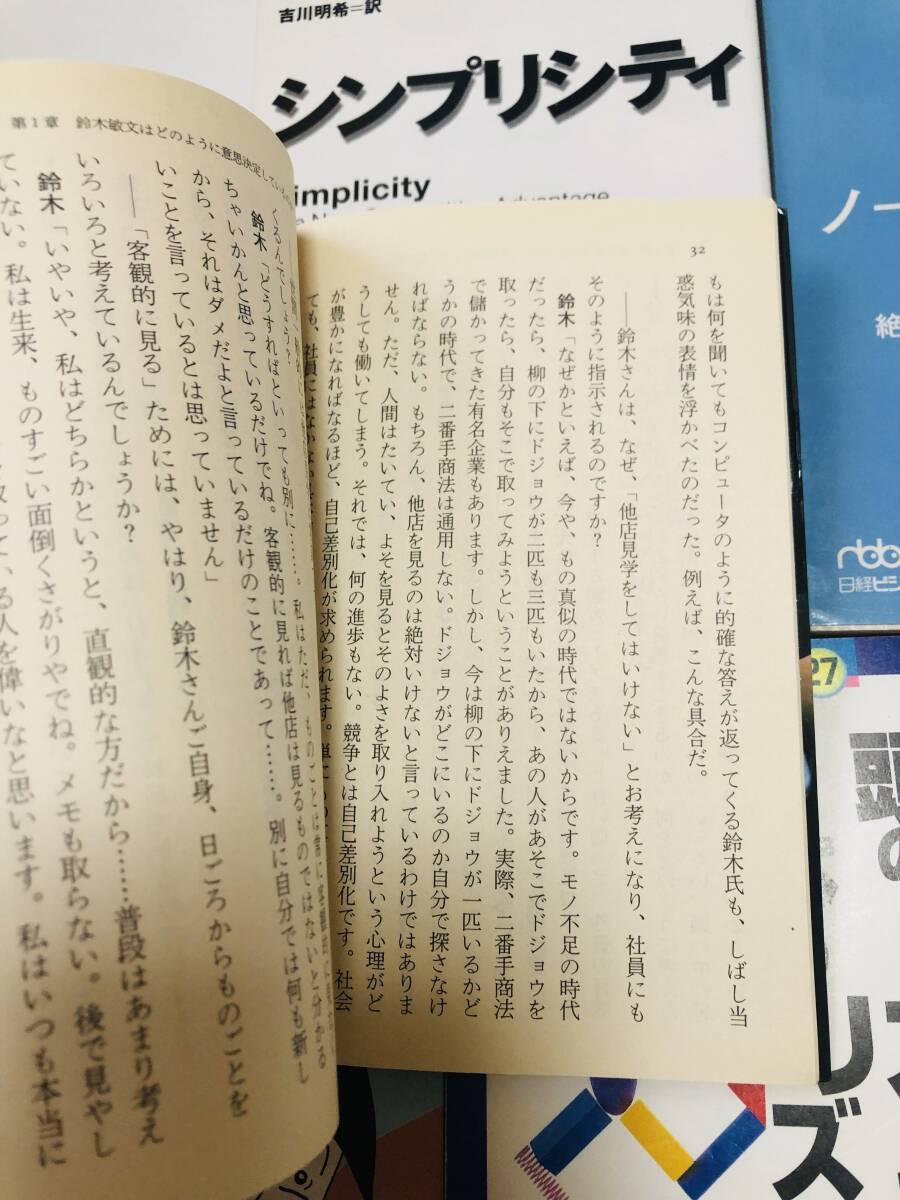 吉川明希=訳
シンプリシティ
implicity
Advantage
32
もは何を聞いてもコンピュータのように的確な答えが返ってくる鈴木氏も、しばし当
惑気味の表情を浮かべたのだった。例えば、こんな具合だ。
――鈴木さんは、なぜ、「他店見学をしてはいけない」とお考えになり、社員にも
そのように指示されるのですか？
鈴木「なぜかといえば、今や、もの真似の時代ではないからです。モノ不足の時代
だったら、柳の下にドジョウが二匹も三匹もいたから、あの人があそこでドジョウを
取ったら、自分もそこで取ってみようということがありえました。実際、二番手商法
で儲かってきた有名企業もあります。しかし、今は柳の下にドジョウが一匹いるかど
うかの時代で、二番手商法は通用しない。ドジョウがどこにいるのか自分で探さなけ
ればならない。もちろん、他店を見るのは絶対いけないと言っているわけではありま
せん。ただ、人間はたいてい、よそを見るとそのよさを取り入れようという心理がど
うしても働いてしまう。それでは、何の進歩もない。競争とは自己差別化です。社会
が豊かになればなるほど、自己差別化が求められます。
ても、社員にはなかなか
第1章 鈴木敏文はどのように意思決定しているの
くるんでしょう？
鈴木「どうすればといっても別に……。私はただ、ものごとは常に客観的に見なく
ちゃいかんと思っているだけでね。客観的に見れば他店は見るものではないと分かる
から、それはダメだよと言っているだけのことであって……。別に自分では何も新し
いことを言っているとは思っていません」
――「客観的に見る」ためには、やはり、鈴木さんご自身、日ごろからものごとを
いろいろと考えているんでしょうか？
鈴木「いやいや、私はどちらかというと、直観的な方だから……普段はあまり考え
ていない。私は生来、ものすごい面倒くさがりやでね。メモも取らない。後で見やし
ている人を偉いなと思います。私はいつも本当に
ノー
絶
日経ビジ
27
頭
の
リ
ズ